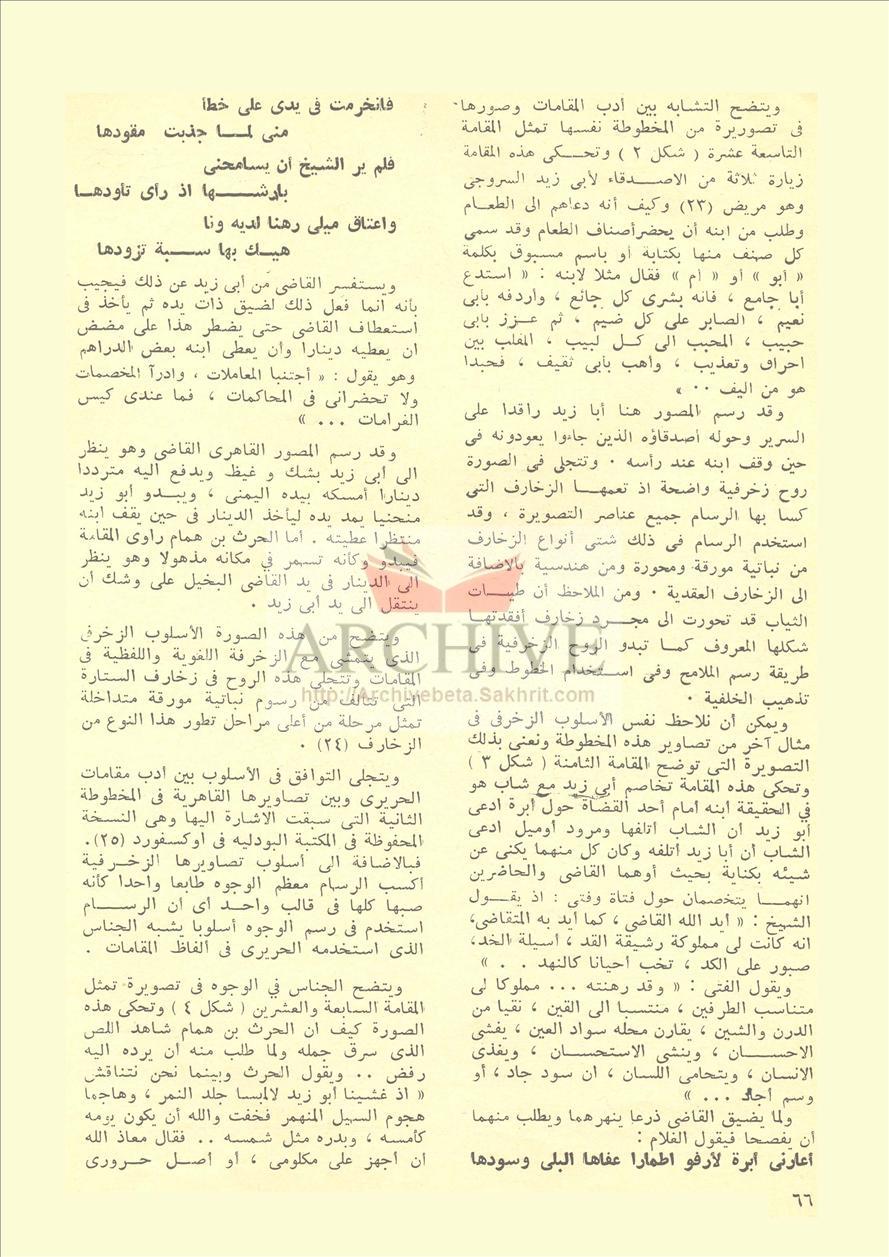 ويتضح التشابه بين أدب المقامات وصورها
فى تصويرة من المخطوطة نفسها تمثل المقامة
التاسعة عشرة ( شكل ٢ ) وتحكى هذه المقامة
زيارة ثلاثة من الاصدقاء لأبى زيد السروجى
وهو مريض (٢٣) وكيف أنه دعاهم الى الطعام
وطلب من ابنه أن يحضرأصناف الطعام وقد سمى
كل صنف منها بكتابة أو باسم مسبوق بكلمة
« أبو » أو « أم » فقال مثلا لابنه : « استدع
أبا جامع ، فانه بشرى كل جائع ، وأردفه بأبى
نعيم ، الصابر على كل ضيم ، ثم عزز بابى
حبيب ، المحبب الى كل لبيب ، المقلب بين
احراق وتعذيب ، وأهب بأبى ثقيف ، فحبدا
هو من اليف ٠٠ »
وقد رسم المصور هنا أبا زيد راقدا على
السرير وحوله أصدقاؤه الذين جاءوا يعودونه فى
حين وقف ابنه عند رأسه ٠ وتتجلى فى الصورة
روح زخرفية واضحة اذ تعمها الزخارف التى
كسا بها الرسام جميع عناصر التصويرة ، وقد
استخدم الرسام فى ذلك شتى أنواع الزخارف
من نباتية مورقة ومحورة ومن هندسية بالاضافة
الى الزخارف العقدية ٠ ومن الملاحظ أن طيات
الثياب قد تحورت الى مجرد زخارف أفقدتها
شكلها المعروف كما تبدو الروح الزخرفية فى
طريقة رسم الملامح وفى استخدام الخطوط وفى
تذهيب الخلفية ٠
ويمكن أن نلاحظ نفس الأسلوب الزخرفى فى
مثال آخر من تصاوير هذه المخطوطة ونعنى بذلك
التصويرة التى توضح المقامة الثامنة ( شكل ٣ )
وتحكى هذه المقامة تخاصم أبى زيد مع شاب هو
في الحقيقة ابنه أمام أحد القضاة حول أبرة ادعى
أبو زيد ان الشاب أتلفها ومرود أوميل ادعى
الشاب أن أبا زيد أتلفه وكان كل منهما يكنى عن
شيئه بكناية بحيث أوهما القاضى والحاضرين
انهما يتخصمان حول فتاة وفتى : اذ يقول
الشيخ : « أيد الله القاضى ، كما أيد به المتقاضى،
انه كانت لى مملوكة رشيقة القد ، أسيلة الخد،
صبور على الكد ، تخب أحيانا كالنهد . . »
ويقول الفتى : « وقد رهنته ... مملوكا لى
متناسب الطرفين ، منتسبا الى القين ، نقيا من
الدرن والشين ، يقارن محله سواد العين ، يفشى
الاحسان ، وينشى الاستحسان ، ويغذى
الانسان ، ويتحامى اللسان ، ان سود جاد ، أو
وسم أجاد ... »
ولما يضيق القاضى ذرعا ينهرهما ويطلب منهما
أن يفصحا فيقول الغلام :
أعارنى أبرة لأرفو اطمارا عفاها البلى وسودها
فانخرمت فى يدى على خطأ
منى لما جذبت مقودها
فلم ير الشيخ أن يسامحنى
بارشها اذ رأى تأودها
واعتاق ميلى رهنا لديه ونا
هيك بها سبة تزودها
ويستفسر القاضى من أبى زيد عن ذلك فيجيب
بأنه انما فعل ذلك لضيق ذات يده ثم يأخذ فى
استعطاف القاضى حتى يضطر هذا على مضض
ان يعطيه دينارا وان يعطى ابنه بعض الدراهم
وهو يقول : « أجتنبا المعاملات ، وادرآ المخصمات
ولا تحضرانى فى المحاكمات ، فما عندى كيس
الغرامات ... »
وقد رسم المصور القاهرى القاضى وهو ينظر
الى أبى زيد بشك و غيظ ويدفع اليه مترددا
دينارا أمسكه بيده اليمنى ، ويبدو أبو زيد
منحنيا يمد يده ليأخذ الدينار فى حين يقف ابنه
منتظرا عطيته . أما الحرث بن همام راوى المقامة
فيبدو وكأنه تسمر في مكانه مذهولا وهو ينظر
الى الدينار في يد القاضى البخيل على وشك أن
ينتقل الى يد أبى زيد .
ويتضح من هذه الصورة الأسلوب الزخرفى
الذى يتمشى مع الزخرفة اللغوية واللفظية فى
المقامات وتتجلى هذه الروح فى زخارف الستارة
التى تتألف من رسوم نباتية مورقة متداخلة
تمثل مرحلة من أعلى مراحل تطور هذا النوع من
الزخارف (٢٤) ٠
ويتجلى التوافق فى الأسلوب بين أدب مقامات
الحريرى وبين تصاويرها القاهرية فى المخطوطة
الثانية التى سبقت الاشارة اليها وهى النسخة
المحفوظة فى المكتبة البودليه فى أوكسفورد (٢٥).
فبالاضافة الى أسلوب تصاويرها الزخرفية
أكسب الرسام معظم الوجوه طابعا واحدا كأنه
صبها كلها فى قالب واحد أى ان الرسام
استخدم فى رسم الوجوه أسلوبا يشبه الجناس
الذى استخدمه الحريرى فى ألفاظ المقامات .
ويتضح الجناس في الوجوه فى تصويرة تمثل
المقامة السابعة والعشرين ( شكل ٤ ) وتحكى هذه
الصورة كيف ان الحرث بن همام شاهد اللص
الذى سرق جمله ولما طلب منه أن يرده اليه
رفض .. ويقول الحرث وبينما نحن نتناقش
« اذ غشينا أبو زيد لابسا جلد النمر ، وهاجما
هجوم السيل المنهمر فخفت والله أن يكون يومه
كأمسه ، وبدره مثل شمسه .. فقال معاذ الله
ان أجهز على مكلومى ، أو أصل حرورى
ARCHIVE
http://Archivebeta.Sakhrit.com
٦٦